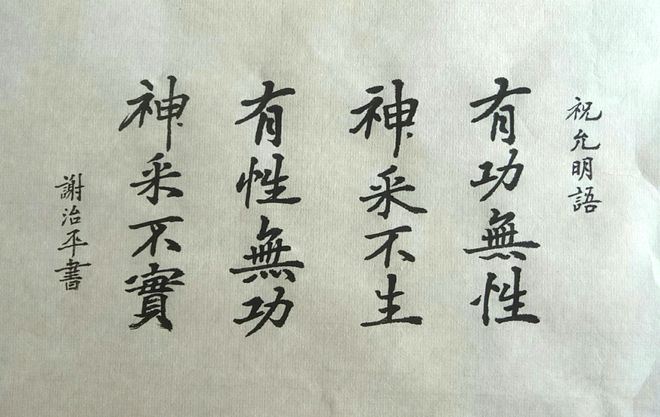 祝允明語
有功無性
神采不生
有性無功
神采不實
謝治平書